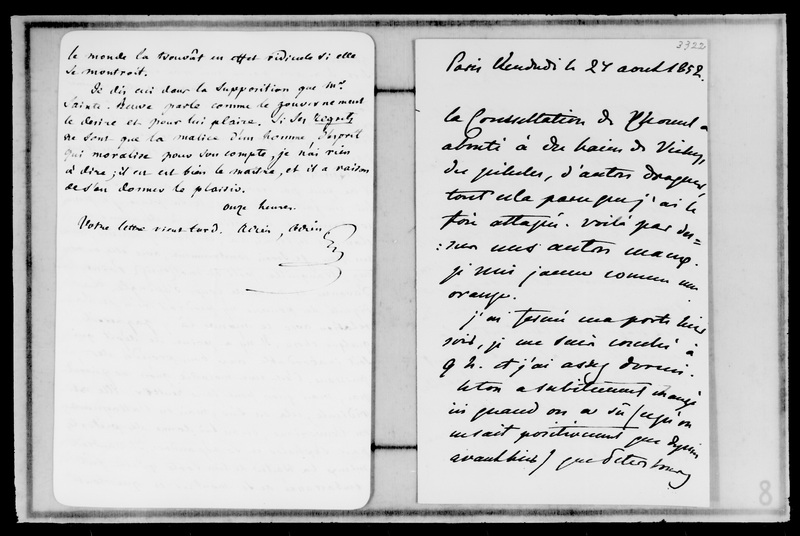 le monde la trouvât en effet ridicule si elle
se montroit.
Je dis ceci dans la supposition que Mr.
Sainte-Beuve parle comme le gouvernement
le desire et pour lui plaire. Si ses regrets
ne sont que la malice d'un homme d'esprit
qui moralise pour son compte, je n'ai rien
à dire ; il en est bien le maitre, et il a raison
de s'en donner le plaisir.
onze heures.
Votre lettre vient tard. Adieu, Adieu
3322
Paris Vendredi le 27 aout 1852.
la Consultation de Chomel a
abouti à des bains de Vichy,
des pilules, d'autres drogues,
tout cela parceque j'ai le
foie attaqué. voilà par des=
:sus mes autres maux.
je suis jaune comme une
orange.
j'ai fermé ma porte hier
soir, je me suis couchée à
9 h. et j'ai assez dormi.
le ton a subitement changé
ici quand on a sû (ce qu'on
ne sait positivement que depuis
avant hier) que Petersbourg
8